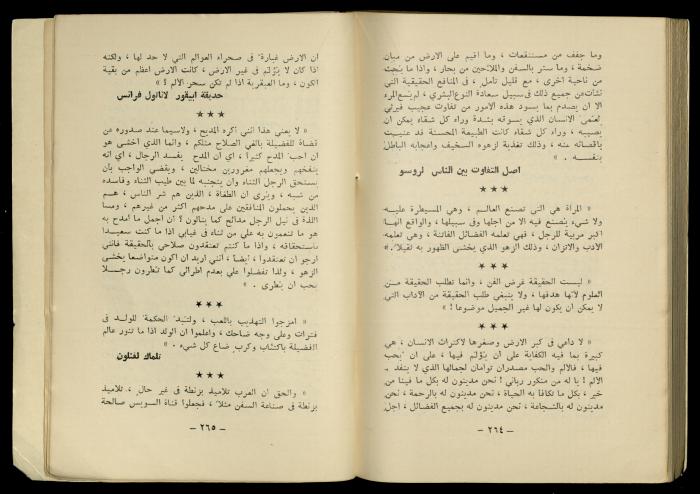 وما جفف من مستنقعات ، وما اقيم على الارض من مبان
ضخمة ، وما ستر بالسفن والملاحين من بحار ، واذا ما بحث
من ناحية اخرى ، مع قليل تأمل ، في المنافع الحقيقية التي
نشأت عن جميع ذلك في سبيل سعادة النوع البشري ، لم يسع المرء
الا ان يصدم بما يسود هذه الامور من تفاوت عجيب فيرثي
لعمى الانسان الذي يسوقه بشدة وراء كل شقاء يمكن ان
يصيبه ، وراء كل شقاء كانت الطبيعة المحسنة قد عنيت
باقصائه عنه ، وذلك تغذية لزهوه السخيف واعجابه الباطل
بنفسه . »
اصل التفاوت بين الناس لروسو
★★★
« المرأة هي التي تصنع العالم ، وهي المسيطرة عليه
ولا شيء يصنع فيه الا من اجلها وفي سبيلها ، والواقع انها
اكبر مربية للرجل ، فهي تعلمه الفضائل الفاتنة ، وهي تعلمه
الأدب والاتزان ، وذلك الزهو الذي يخشى الظهور به ثقيلا . »
★★★
« ليست الحقيقة غرض الفن ، وانما تطلب الحقيقة من
العلوم لأنها هدفها ، ولا ينبغي طلب الحقيقة من الآداب التي
لا يمكن ان يكون لها غير الجميل موضوعا ! »
★★★
« لا داعي في كبر الارض وصغرها لاكتراث الانسان ، هي
كبيرة بما فيه الكفاية على ان يؤلم فيها ، على ان يحب
فيها ، فالالم والحب مصدران توأمان لجمالها الذي لا ينفد .
الألم ! يا له من منكور رباني ! نحن مدينون له بكل ما فينا من
خير ، بكل ما تكافأ به الحياة ، نحن مدينون له بالرحمة ، نحن
مدينون له بالشجاعة ، نحن مدينون له بجميع الفضائل ، اجل
– ٢٦٤ –
ان الارض غبارة في صحراء العوالم التي لا حد لها ، ولكنه
اذا كان لا يؤلم في غير الارض ، كانت الارض اعظم من بقية
الكون ، وما العبقرية اذا لم تكن سحر الألم ؟ »
حديقة ابيقور لاناتول فرانس
★★★
« لا يعني هذا انني اكره المديح ، ولاسيما عند صدوره عن
قضاة للفضيلة بالغي الصلاح مثلكم ، وانما الذي اخشى هو
ان احب المدح كثيرا ، اي ان المدح يفسد الرجال ، اي انه
ينفخهم ويجعلهم مغرورين مختالين ، ويقضي الواجب بان
يستحق الرجل الثناء وان يتجنبه لما بين طيب الثناء وفاسده
من شبه ، ويرى ان الطغاة ، الذين هم شر الناس ، هم
الذين يحملون المنافقين على مدحهم اكثر من غيرهم ، وما
اللذة في نيل الرجل مدائح كما ينالون ؟ ان اجمل ما امدح به
هو ما تنعمون به علي من ثناء في غيابي اذا ما كنت سعيدا
باستحقاقه ، واذا ما كنتم تعتقدون صلاحي بالحقيقة فانني
ارجو ان تعتقدوا ، ايضا ، انني اريد ان اكون متواضعا يخشى
الزهو ، ولذا تفضلوا علي بعدم اطرائي كما تطرون رجلا
يحب ان يطرى . »
★★★
« امزجوا التهذيب باللعب ، ولتبد الحكمة للولد في
فترات وعلى وجه ضاحك ، واعلموا ان الولد اذا ما تنور عالم
الفضيلة باكتئاب وكرب ضاع كل شيء . »
تلماك لفنلون
★★★
« والحق ان العرب تلاميذ بزنطة في غير حال ، تلاميذ
بزنطة في صناعة السفن مثلا ، فجعلوا قناة السويس صالحة
– ٢٦٥ –